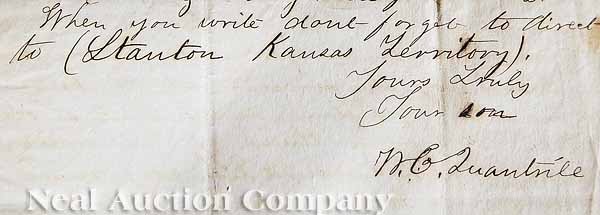 When you write dont forget to direct
to (Stanton Kansas Territory).
Yours Truly
Your son
W.C. Quantrile
Neal Auction Company